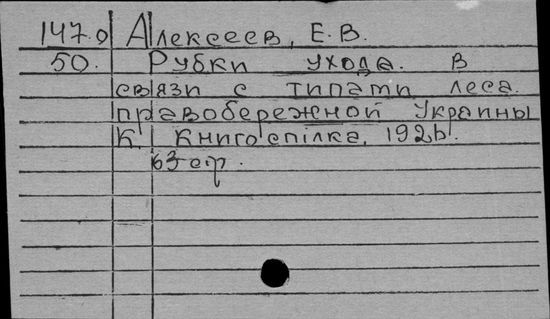 147.0 Алексеев, Е. В.
50. Рубки ухода. в
связи с типами леса
правобережной Украины
К. Книгоспілка, 1926.
63 стр.